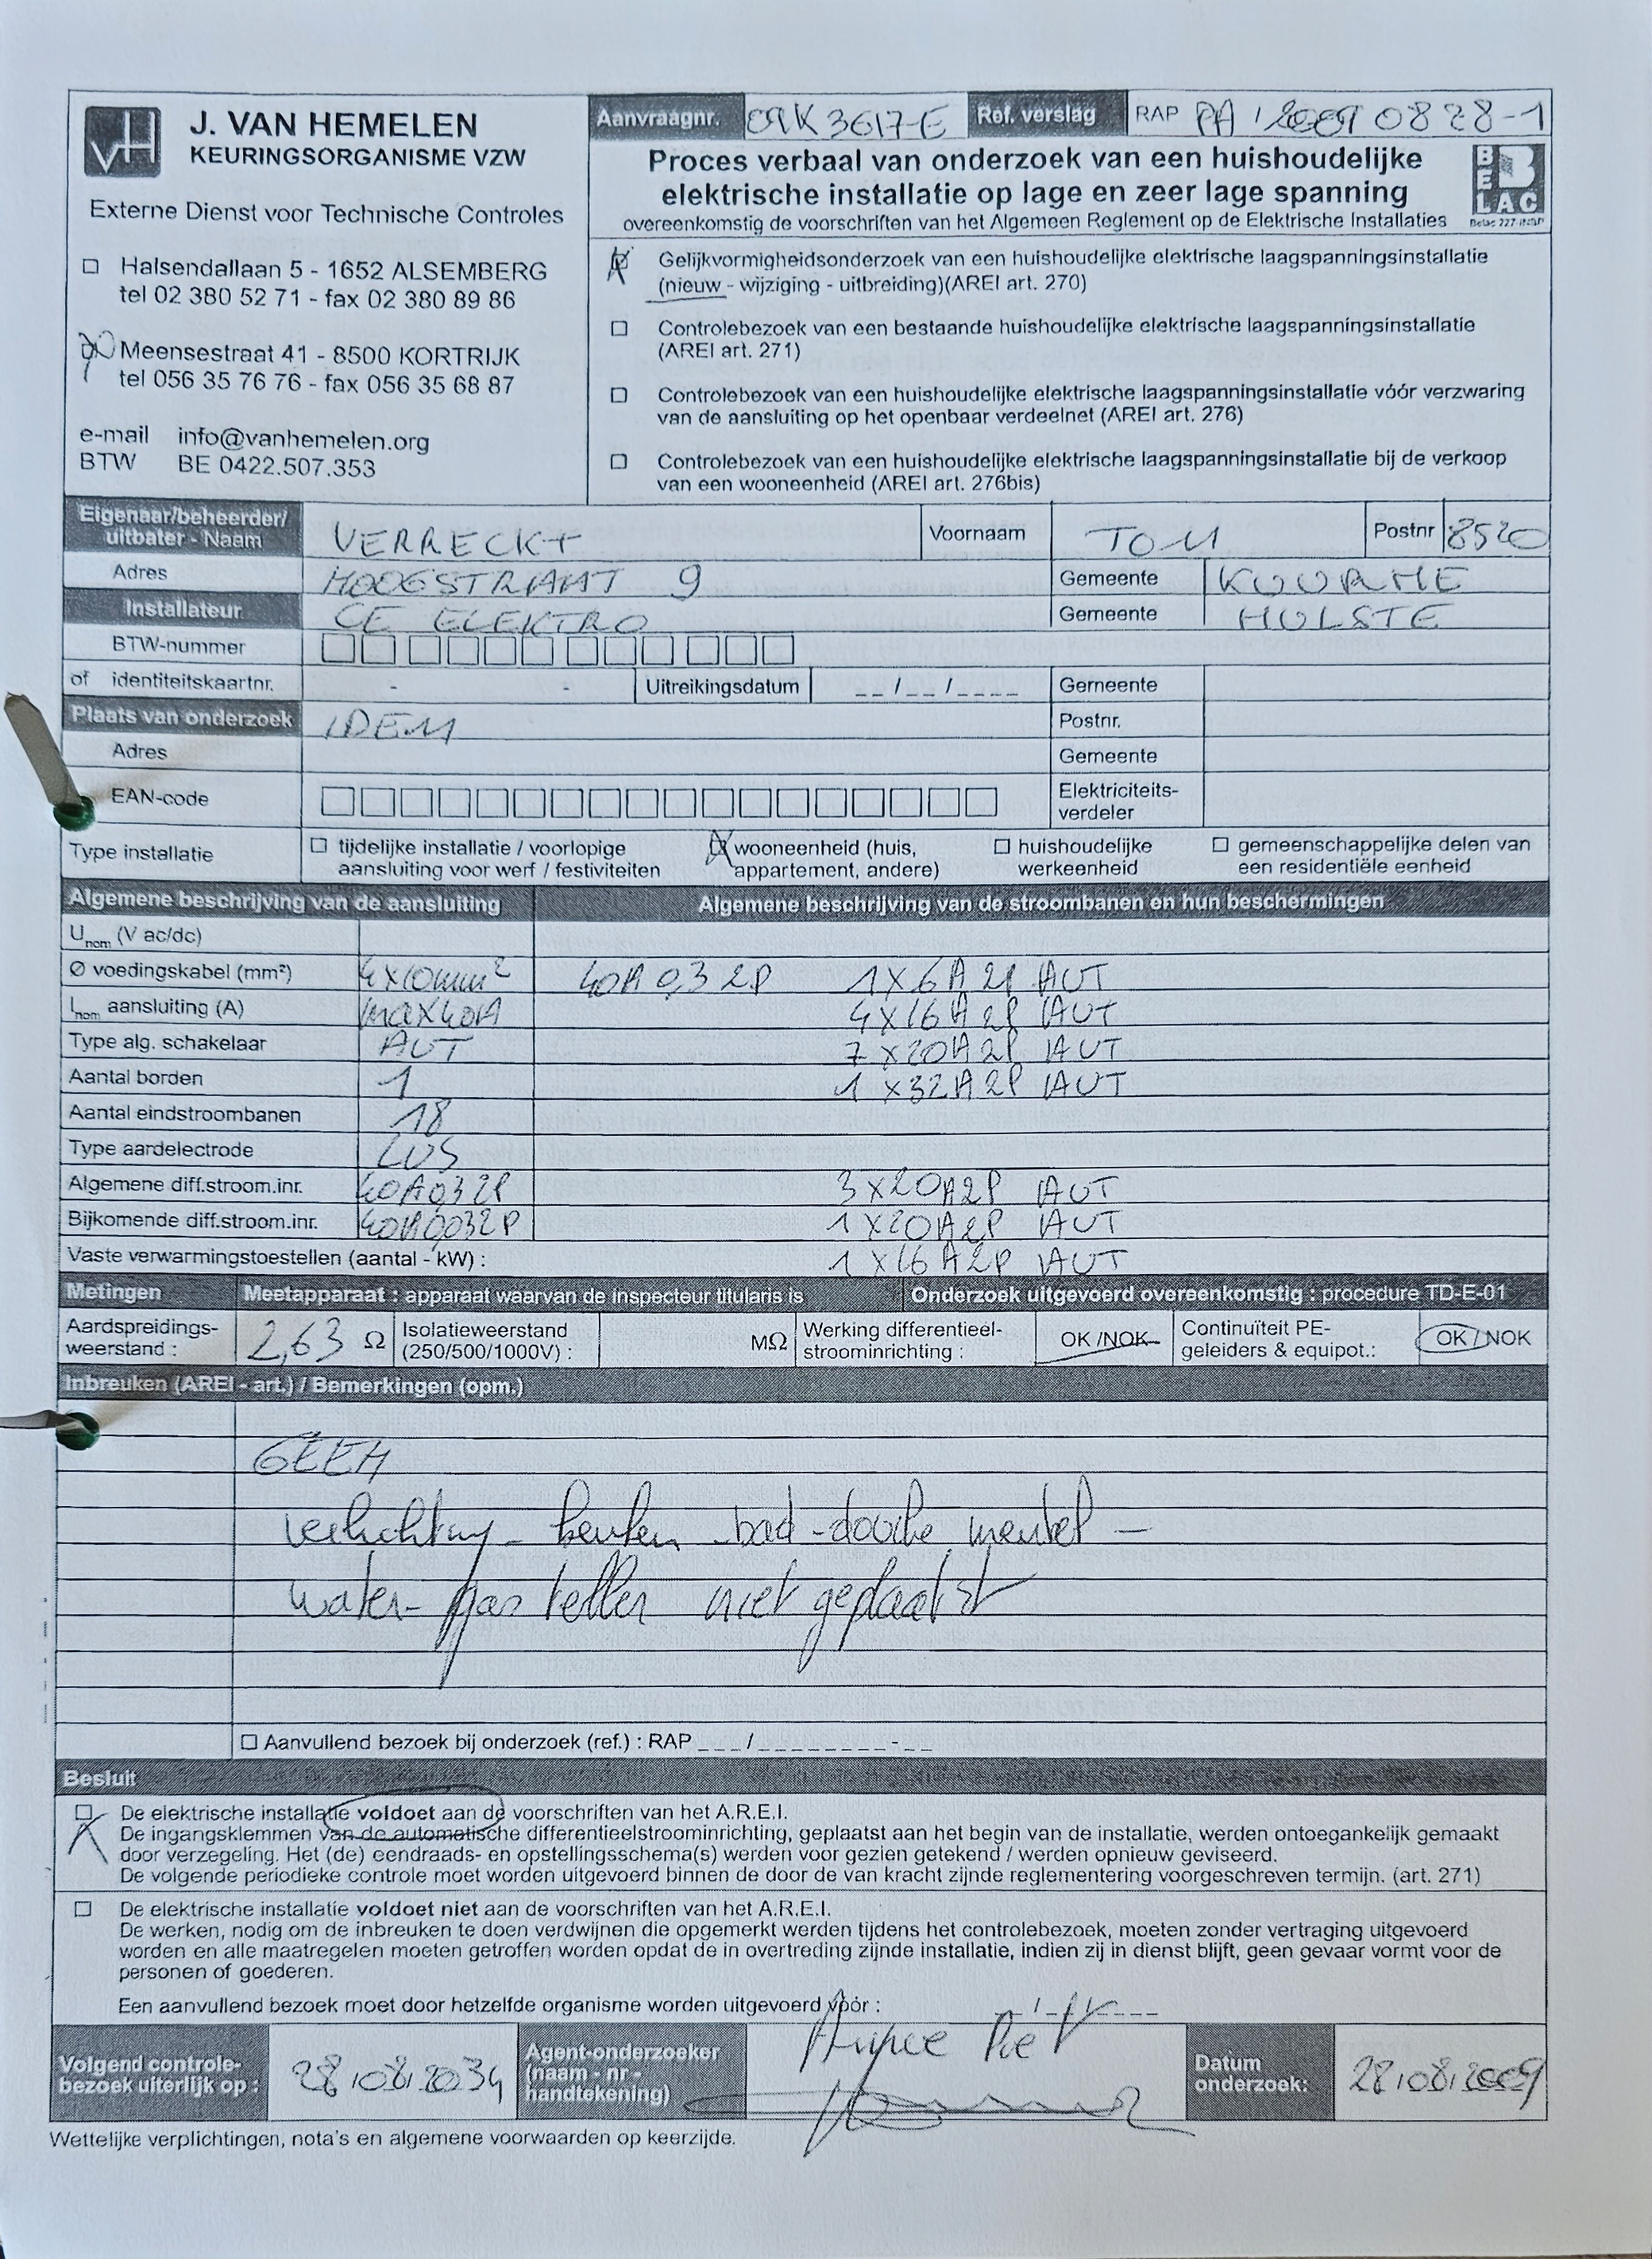 J. VAN HEMELEN
KEURINGSORGANISME VZW
Externe Dienst voor Technische Controles
Halsendallaan 5 - 1652 ALSEMBERG
tel 02 380 52 71 - fax 02 380 89 86
Meensestraat 41 - 8500 KORTRIJK
tel 056 35 76 76 - fax 056 35 68 87
e-mail info@vanhemelen.org
BTW BE 0422.507.353
Aanvraagnr. 3617-E Ref. verslag RAP PA / 20090828-1
Proces verbaal van onderzoek van een huishoudelijke
elektrische installatie op lage en zeer lage spanning
overeenkomstig de voorschriften van het Algemeen Reglement op de Elektrische Installaties
BELAC
Belac 227-INSP
Gelijkvormigheidsonderzoek van een huishoudelijke elektrische laagspanningsinstallatie
(nieuw - wijziging - uitbreiding)(AREI art. 270)
Controlebezoek van een bestaande huishoudelijke elektrische laagspanningsinstallatie
(AREI art. 271)
Controlebezoek van een huishoudelijke elektrische laagspanningsinstallatie vóór verzwaring
van de aansluiting op het openbaar verdeelnet (AREI art. 276)
Controlebezoek van een huishoudelijke elektrische laagspanningsinstallatie bij de verkoop
van een wooneenheid (AREI art. 276bis)
Eigenaar/beheerder/
uitbater - Naam VERRECKT Voornaam TOM Postnr 8520
Adres HOOGSTRAAT 9 Gemeente KUURNE
Installateur CE ELEKTRO Gemeente HULSTE
BTW-nummer
of identiteitskaartnr. - - Uitreikingsdatum __/__/____ Gemeente
Plaats van onderzoek IDEM Postnr.
Adres Gemeente
EAN-code Elektriciteits-
verdeler
Type installatie
tijdelijke installatie / voorlopige
aansluiting voor werf / festiviteiten
wooneenheid (huis,
appartement, andere)
huishoudelijke
werkeenheid
gemeenschappelijke delen van
een residentiële eenheid
Algemene beschrijving van de aansluiting Algemene beschrijving van de stroombanen en hun beschermingen
Unom (V ac/dc)
Ø voedingskabel (mm²) 4x10mm² 40A 0,3 2P 1x6A 2P AUT
Inom aansluiting (A) max40A 4x16A 2P AUT
Type alg. schakelaar AUT 7x20A 2P AUT
Aantal borden 1 1x32A 2P AUT
Aantal eindstroombanen 18
Type aardelectrode LUS
Algemene diff.stroom.inr. 40A 0,3 2P 3x20A 2P AUT
Bijkomende diff.stroom.inr. 40A 0,03 2P 1x20A 2P AUT
Vaste verwarmingstoestellen (aantal - kW) : 1x16A 2P AUT
Metingen Meetapparaat : apparaat waarvan de inspecteur titularis is Onderzoek uitgevoerd overeenkomstig : procedure TD-E-01
Aardspreidings-
weerstand : 2,63 Ω
Isolatieweerstand
(250/500/1000V) : MΩ
Werking differentieel-
stroominrichting : OK /NOK
Continuïteit PE-
geleiders & equipot.: OK / NOK
Inbreuken (AREI - art.) / Bemerkingen (opm.)
GEEN
verlichting - keuken - bad - douche meubel -
water- gas teller niet geplaatst
Aanvullend bezoek bij onderzoek (ref.) : RAP ___/________-__
Besluit
De elektrische installatie voldoet aan de voorschriften van het A.R.E.I.
De ingangsklemmen van de automatische differentieelstroominrichting, geplaatst aan het begin van de installatie, werden ontoegankelijk gemaakt
door verzegeling. Het (de) eendraads- en opstellingsschema(s) werden voor gezien getekend / werden opnieuw geviseerd.
De volgende periodieke controle moet worden uitgevoerd binnen de door de van kracht zijnde reglementering voorgeschreven termijn. (art. 271)
De elektrische installatie voldoet niet aan de voorschriften van het A.R.E.I.
De werken, nodig om de inbreuken te doen verdwijnen die opgemerkt werden tijdens het controlebezoek, moeten zonder vertraging uitgevoerd
worden en alle maatregelen moeten getroffen worden opdat de in overtreding zijnde installatie, indien zij in dienst blijft, geen gevaar vormt voor de
personen of goederen.
Een aanvullend bezoek moet door hetzelfde organisme worden uitgevoerd vóór :
Volgend controle-
bezoek uiterlijk op : 28/08/2034
Agent-onderzoeker
(naam - nr -
handtekening)
Piet
Datum
onderzoek: 28/08/2009
Wettelijke verplichtingen, nota's en algemene voorwaarden op keerzijde.